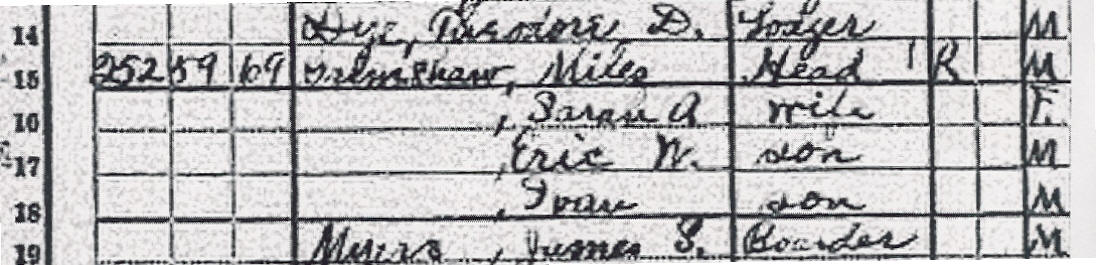 14 Dye, Theodore D. Lodger M
15 252 59 69 Miles Head 1 R M
16 , Sarah A wife F.
17 , Eric W. son M
18 , Ivan son M
19 Myers, James S. Boarder M